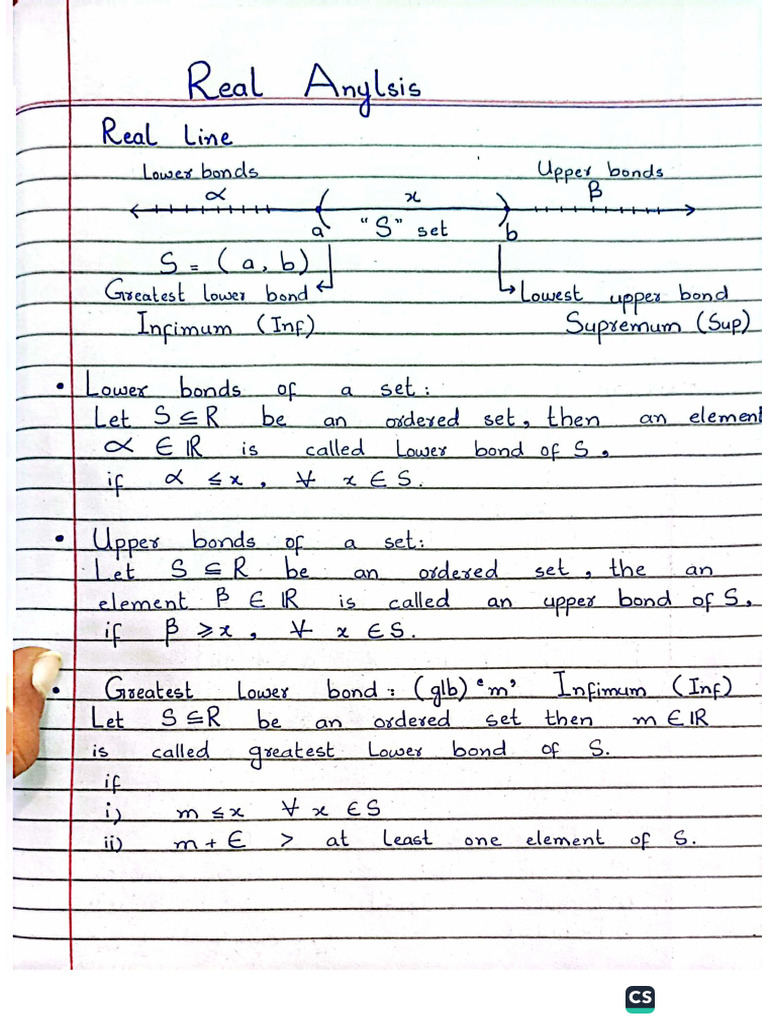 Real Anylsis
Real Line
Lower bonds Upper bonds
α x β
a "S" set b
S = (a, b)
Greatest lower bond Lowest upper bond
Infimum (Inf) Supremum (Sup)
• Lower bonds of a set:
Let S ⊆ R be an ordered set, then an element
α ∈ ℝ is called Lower bond of S,
if α ≤ x, ∀ x ∈ S.
• Upper bonds of a set:
Let S ⊆ R be an ordered set, the an
element β ∈ ℝ is called an upper bond of S,
if β ≥ x, ∀ x ∈ S.
• Greatest Lower bond: (glb) 'm' Infimum (Inf)
Let S ⊆ R be an ordered set then m ∈ ℝ
is called greatest Lower bond of S.
if
i) m ≤ x ∀ x ∈ S
ii) m + ∈ > at least one element of S.
CS